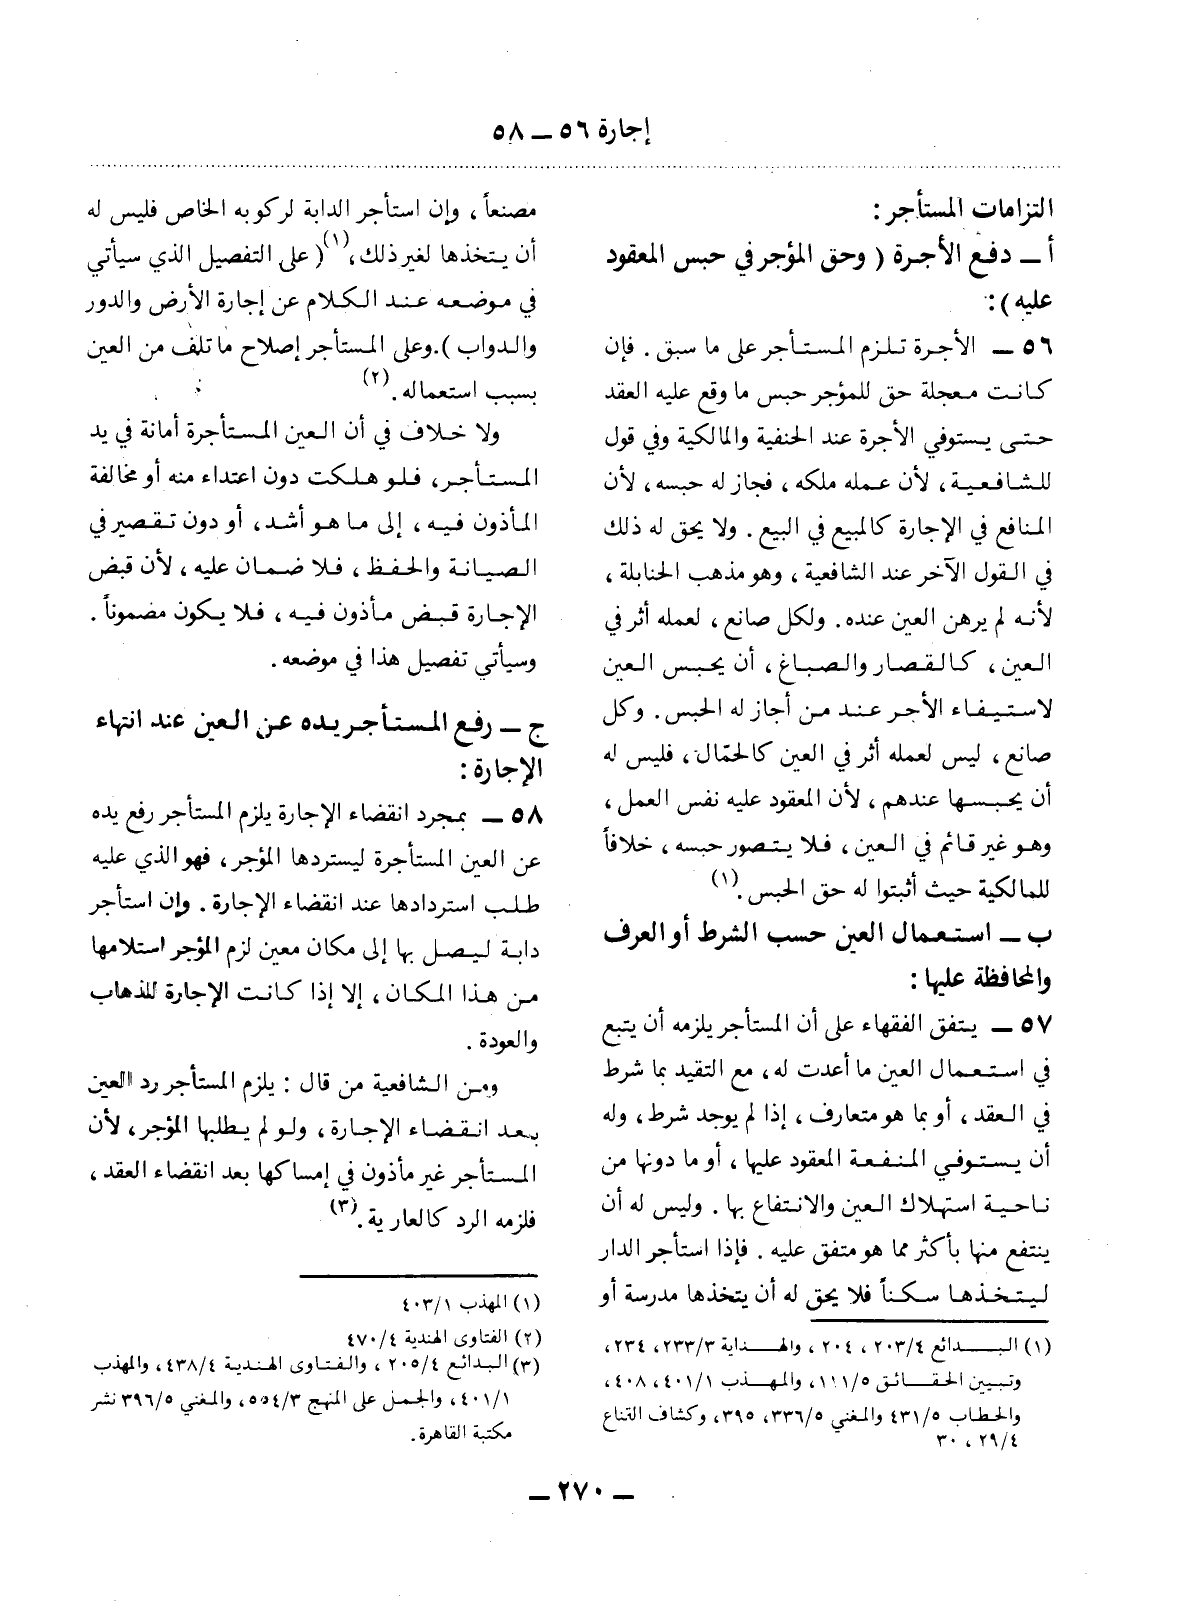 إجارة ٥٦ ــ ٥٨
التزامات المستأجر :
أ ــ دفع الأجرة ( وحق المؤجر في حبس المعقود
عليه ) :
٥٦ ــ الأجرة تلزم المستأجر على ما سبق . فإن
كانت معجلة حق للمؤجر حبس ما وقع عليه العقد
حتى يستوفي الأجرة عند الحنفية والمالكية وفي قول
للشافعية ، لأن عمله ملكه ، فجاز له حبسه ، لأن
المنافع في الإجارة كالمبيع في البيع . ولا يحق له ذلك
في القول الآخر عند الشافعية ، وهو مذهب الحنابلة ،
لأنه لم يرهن العين عنده . ولكل صانع ، لعمله أثر في
العين ، كالقصار والصباغ ، أن يحبس العين
لاستيفاء الأجر عند من أجاز له الحبس . وكل
صانع ، ليس لعمله أثر في العين كالحمّال ، فليس له
أن يحبسها عندهم ، لأن المعقود عليه نفس العمل ،
وهو غير قائم في العين ، فلا يتصور حبسه ، خلافاً
للمالكية حيث أثبتوا له حق الحبس . (١)
ب ــ استعمال العين حسب الشرط أو العرف
والمحافظة عليها :
٥٧ ــ يتفق الفقهاء على أن المستأجر يلزمه أن يتبع
في استعمال العين ما أعدت له ، مع التقيد بما شرط
في العقد ، أو بما هو متعارف ، إذا لم يوجد شرط ، وله
أن يستوفي المنفعة المعقود عليها ، أو ما دونها من
ناحية استهلاك العين والانتفاع بها . وليس له أن
ينتفع منها بأكثر مما هو متفق عليه . فإذا استأجر الدار
ليتخذها سكناً فلا يحق له أن يتخذها مدرسة أو
(١) البدائع ٢٠٣/٤ ، ٢٠٤ ، والهداية ٢٣٣/٣، ٢٣٤،
وتبيين الحقائق ١١١/٥، والمهذب ٤٠١/١، ٤٠٨،
والحطاب ٤٣١/٥ والمغني ٣٣٦/٥، ٣٩٥، وكشاف القناع
٢٩/٤ ، ٣٠
مصنعاً ، وإن استأجر الدابة لركوبه الخاص فليس له
أن يتخذها لغير ذلك ، (١) ( على التفصيل الذي سيأتي
في موضعه عند الكلام عن إجارة الأرض والدور
والدواب ) . وعلى المستأجر إصلاح ما تلف من العين
بسبب استعماله . (٢)
ولا خلاف في أن العين المستأجرة أمانة في يد
المستأجر ، فلو هلكت دون اعتداء منه أو مخالفة
المأذون فيه ، إلى ما هو أشد ، أو دون تقصير في
الصيانة والحفظ ، فلا ضمان عليه ، لأن قبض
الإجارة قبض مأذون فيه ، فلا يكون مضموناً .
وسيأتي تفصيل هذا في موضعه .
ج ــ رفع المستأجر يده عن العين عند انتهاء
الإجارة :
٥٨ ــ بمجرد انقضاء الإجارة يلزم المستأجر رفع يده
عن العين المستأجرة ليستردها المؤجر ، فهو الذي عليه
طلب استردادها عند انقضاء الإجارة . وإن استأجر
دابة ليصل بها إلى مكان معين لزم المؤجر استلامها
من هذا المكان ، إلا إذا كانت الإجارة للذهاب
والعودة .
ومن الشافعية من قال : يلزم المستأجر رد العين
بعد انقضاء الإجارة ، ولو لم يطلبها المؤجر ، لأن
المستأجر غير مأذون في إمساكها بعد انقضاء العقد ،
فلزمه الرد كالعارية . (٣)
(١) المهذب ٤٠٣/١
(٢) الفتاوى الهندية ٤٧٠/٤
(٣) البدائع ٢٠٥/٤ ، والفتاوى الهندية ٤٣٨/٤، والمهذب
٤٠١/١ ، والجمل على المنهج ٥٥٤/٣، والمغني ٣٩٦/٥ نشر
مكتبة القاهرة .
ــ ٢٧٠ ــ